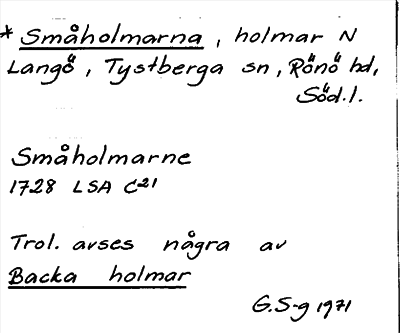 * Småholmarna, holmar N
Langö, Tystberga sn, Rönö hd,
Söd.l.
Småholmarne
1728 LSA C21
Trol. avses några av
Backa holmar
G.S-g 1971